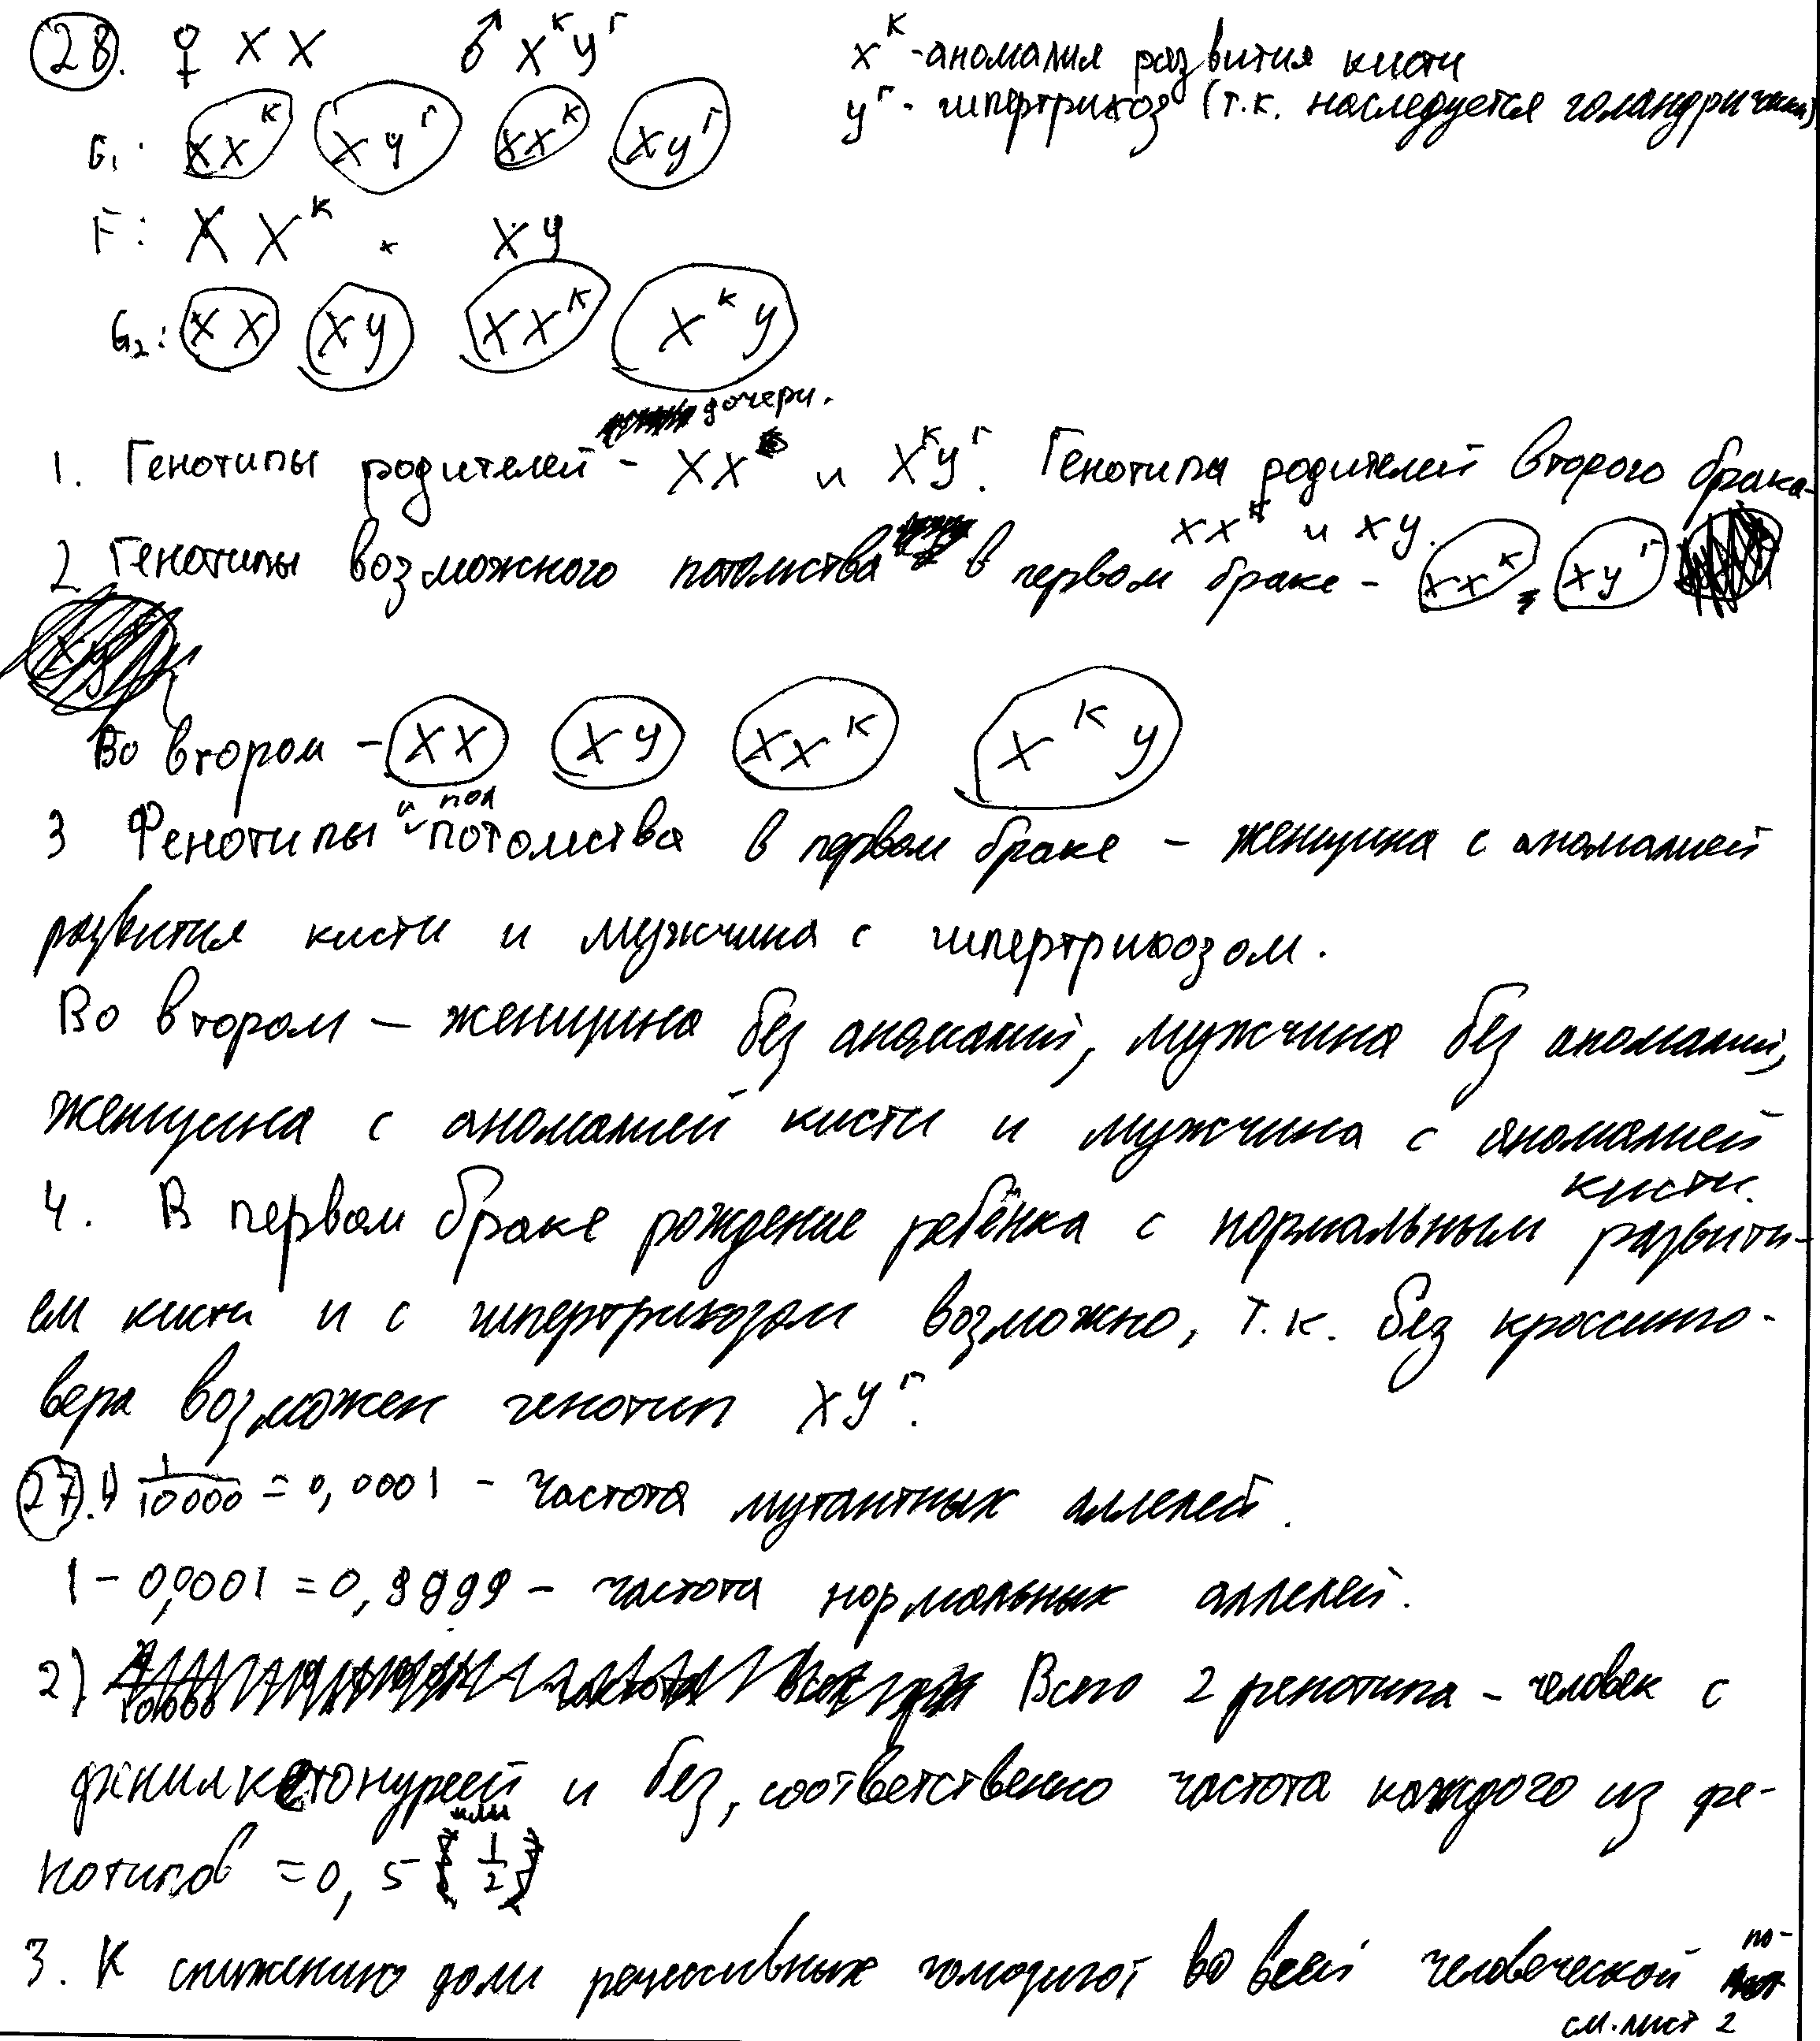 28. ♀ XX ♂ X^К У^Г x^К - аномалия развития кисти
у^Г - гипертрихоз (т.к. наследуется голандрически)
G₁: XX^К XУ^Г XX^К XУ^Г
F: X X^К × XУ
G₂: XX XУ XX^К X^К У
дочери.
1. Генотипы родителей - XX и X^К У^Г. Генотипы родителей второго брака-
XX^К и XУ.
2 Генотипы возможного потомства в первом браке - XX^К, XУ^Г
Во втором - XX XУ XX^К X^К У
и пол
3 Фенотипы потомства в первом браке - женщина с аномалией
развития кисти и мужчина с гипертрихозом.
Во втором - женщина без аномалий, мужчина без аномалий,
женщина с аномалией кисти и мужчина с аномалией
кисти.
4. В первом браке рождение ребёнка с нормальным развити-
ем кисти и с гипертрихозом возможно, т.к. без кроссинго-
вера возможен генотип XУ^Г.
27. 1) 1/10000 = 0,0001 - частота мутантных аллелей.
1 - 0,0001 = 0,9999 - частота нормальных аллелей.
2) Всего 2 фенотипа - человек с
фенилкетонурией и без, соответственно частота каждого из фе-
нотипов = 0,5 или 1/2
3. К снижению доли рецессивных гомозигот во всей человеческой по-
см. лист 2